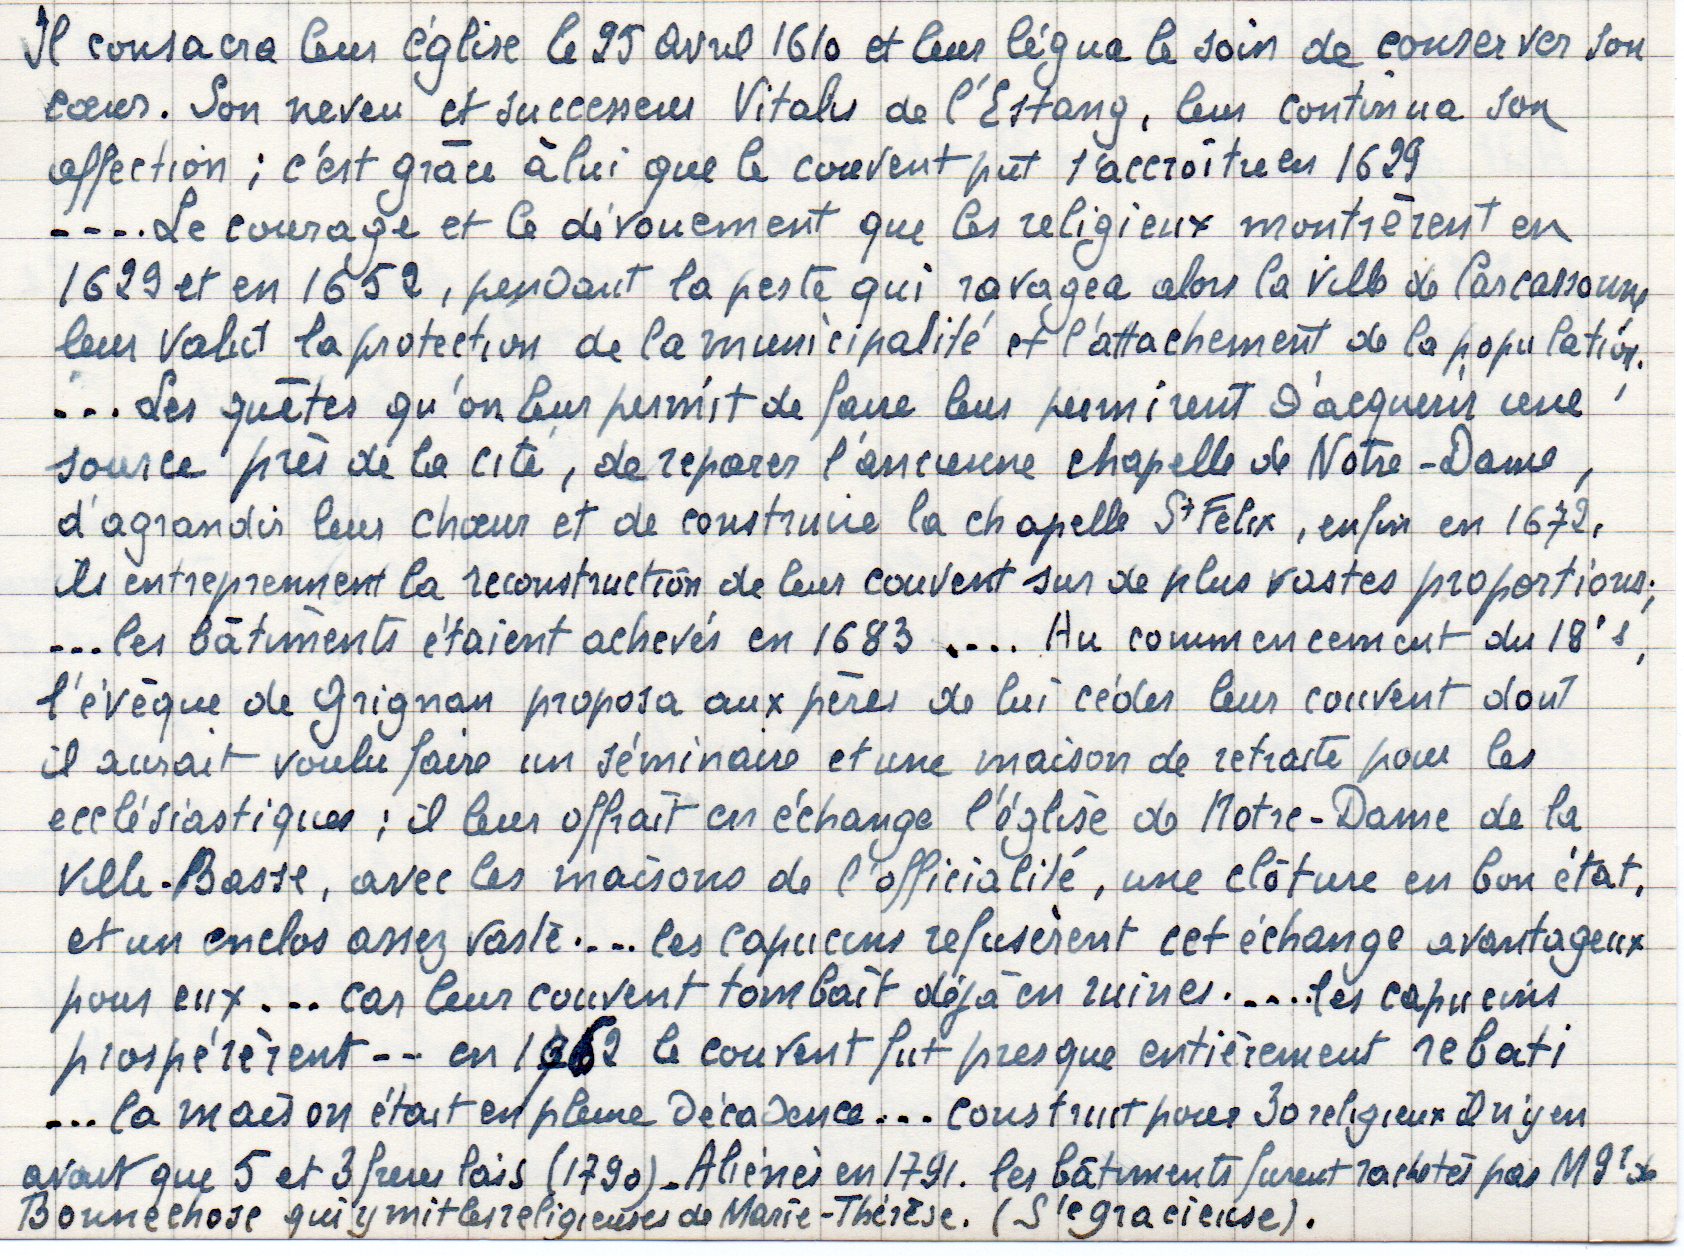 Il consacra leur église le 25 Avril 1610 et leur légua le soin de conserver son
cœur. Son neveu et successeur Vitalis de l'Estang, leur continua son
affection ; c'est grâce à lui que le couvent put s'accroître en 1629
----. Le courage et le dévouement que les religieux montrèrent en
1629 et en 1652, pendant la peste qui ravagea alors la ville de Carcassonne
leur valut la protection de la municipalité et l'attachement de la population.
... Les quêtes qu'on leur permit de faire leur permirent d'acquerir une
source près de la cité, de reparer l'ancienne chapelle de Notre-Dame,
d'agrandir leur chœur et de construire la chapelle St Felix, enfin en 1672,
ils entreprennent la reconstruction de leur couvent sur de plus vastes proportions;
...les bâtiments étaient achevés en 1683 .... Au commencement du 18's,
l'évêque de Grignan proposa aux pères de lui céder leur couvent dont
il aurait voulu faire un séminaire et une maison de retraite pour les
ecclésiastiques ; il leur offrait en échange l'église de Notre-Dame de la
Ville-Basse, avec les maisons de l'officialité, une clôture en bon état,
et un enclos assez vaste.... les capucins refusèrent cet échange avantageux
pour eux ... car leur couvent tombait déjà en ruines. ....les capucins
prospérèrent -- en 1762 le couvent fut presque entièrement rebati
... la maison était en pleine décadence ... construit pour 30 religieux il n'y en
avait que 5 et 3 freres lais (1790) - Aliénés en 1791. les bâtiments furent rachetés par Mgr de
Bonnechose qui y mit les religieuses de Marie-Thérèse. (Ste gracieuse).